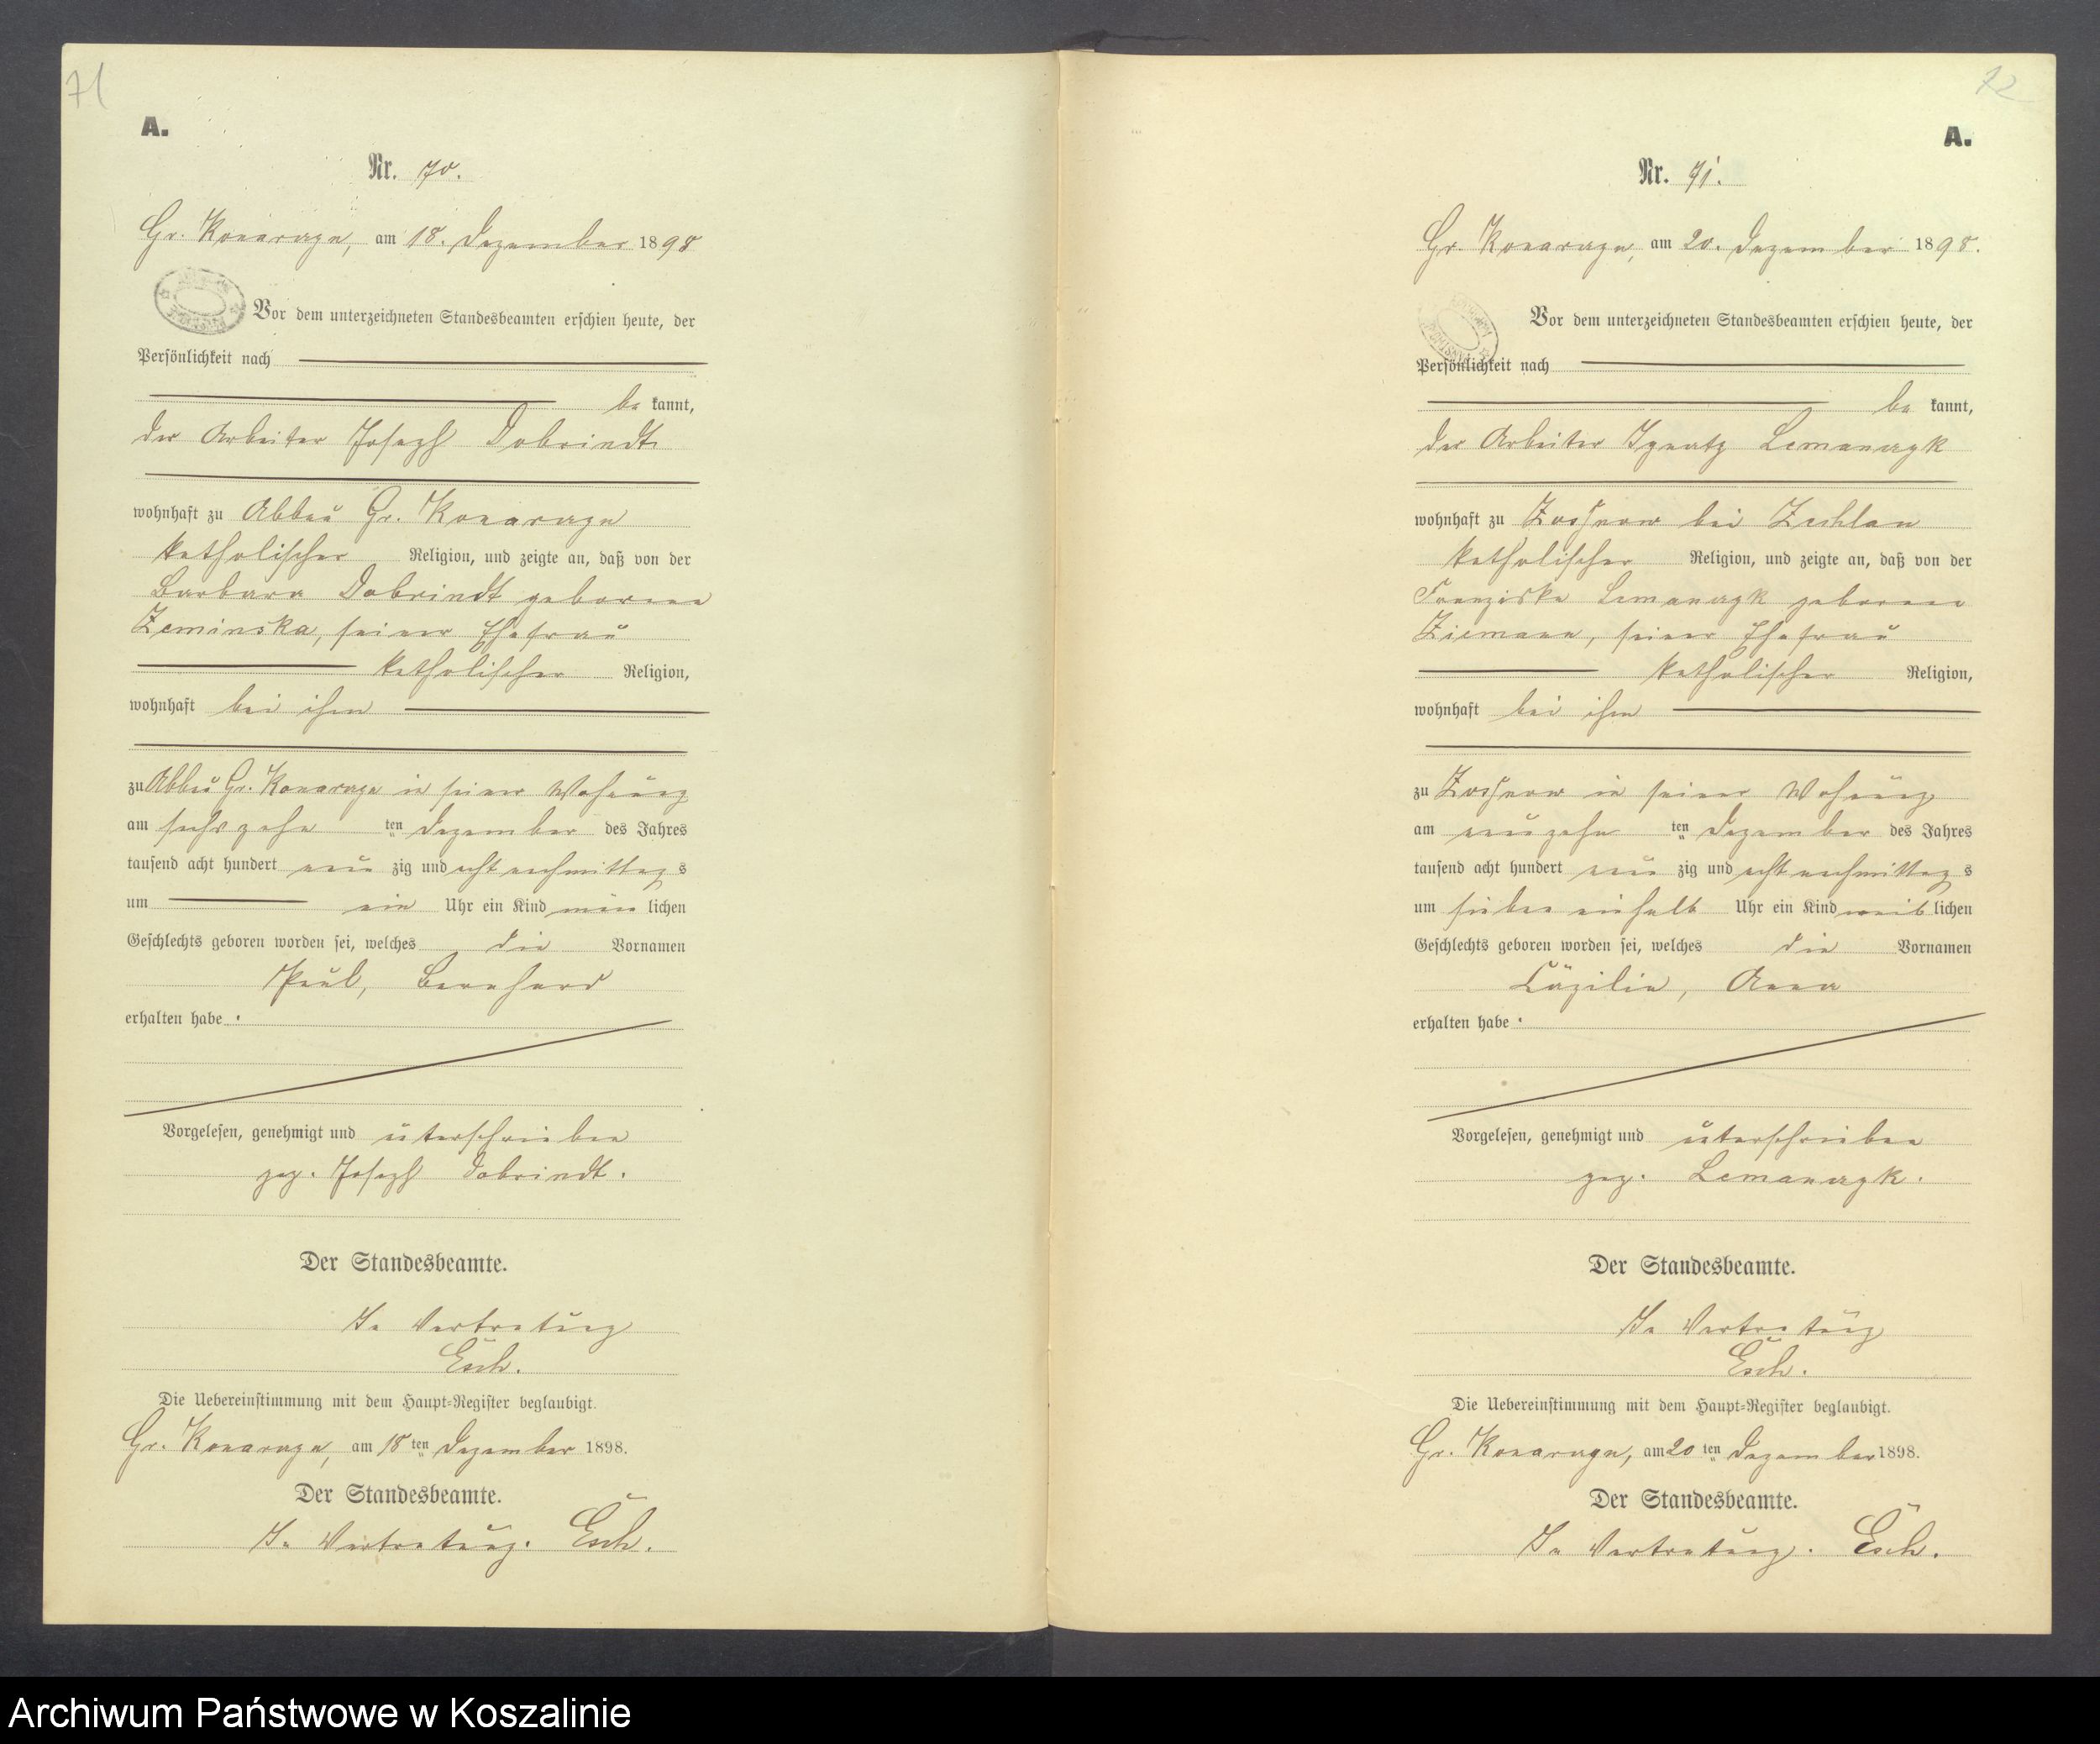 71
A.
Nr. 70.
Gr. Konarczyn, am 18. Dezember 1898
Vor dem unterzeichneten Standesbeamten erschien heute, der
Persönlichkeit nach
be kannt,
der Arbeiter Joseph Dobrindt
wohnhaft zu Abbau Gr. Konarczyn
katholischer Religion, und zeigte an, daß von der
Barbara Dobrindt geborene
Zeminska, seiner Ehefrau
katholischer Religion,
wohnhaft bei ihm
zu Abbau Gr. Konarczyn in seiner Wohnung
am sechszehn ten Dezember des Jahres
tausend acht hundert neun zig und acht nachmittag s
um ein Uhr ein Kind män lichen
Geschlechts geboren worden sei, welches die Vornamen
Paul, Bernhard
erhalten habe.
Vorgelesen, genehmigt und unterschrieben
gez. Joseph Dobrindt.
Der Standesbeamte.
In Vertretung
Esch.
Die Uebereinstimmung mit dem Haupt-Register beglaubigt.
Gr. Konarczyn, am 18ten Dezember 1898.
Der Standesbeamte.
In Vertretung. Esch.
72
A.
Nr. 71.
Gr. Konarczyn, am 20. Dezember 1898.
Vor dem unterzeichneten Standesbeamten erschien heute, der
Persönlichkeit nach
be kannt,
der Arbeiter Ignatz Lemanczyk
wohnhaft zu Zossnow bei Zechlau
katholischer Religion, und zeigte an, daß von der
Franziska Lemanczyk geborene
Ziemann, seiner Ehefrau
katholischer Religion,
wohnhaft bei ihm
zu Zossnow in seiner Wohnung
am neunzehn ten Dezember des Jahres
tausend acht hundert neun zig und acht nachmittag s
um sieben einhalb Uhr ein Kind weib lichen
Geschlechts geboren worden sei, welches die Vornamen
Cäzilie, Anna
erhalten habe.
Vorgelesen, genehmigt und unterschrieben
gez. Lemanczyk.
Der Standesbeamte.
In Vertretung
Esch.
Die Uebereinstimmung mit dem Haupt-Register beglaubigt.
Gr. Konarczyn, am 20ten Dezember 1898.
Der Standesbeamte.
In Vertretung. Esch.
Archiwum Państwowe w Koszalinie